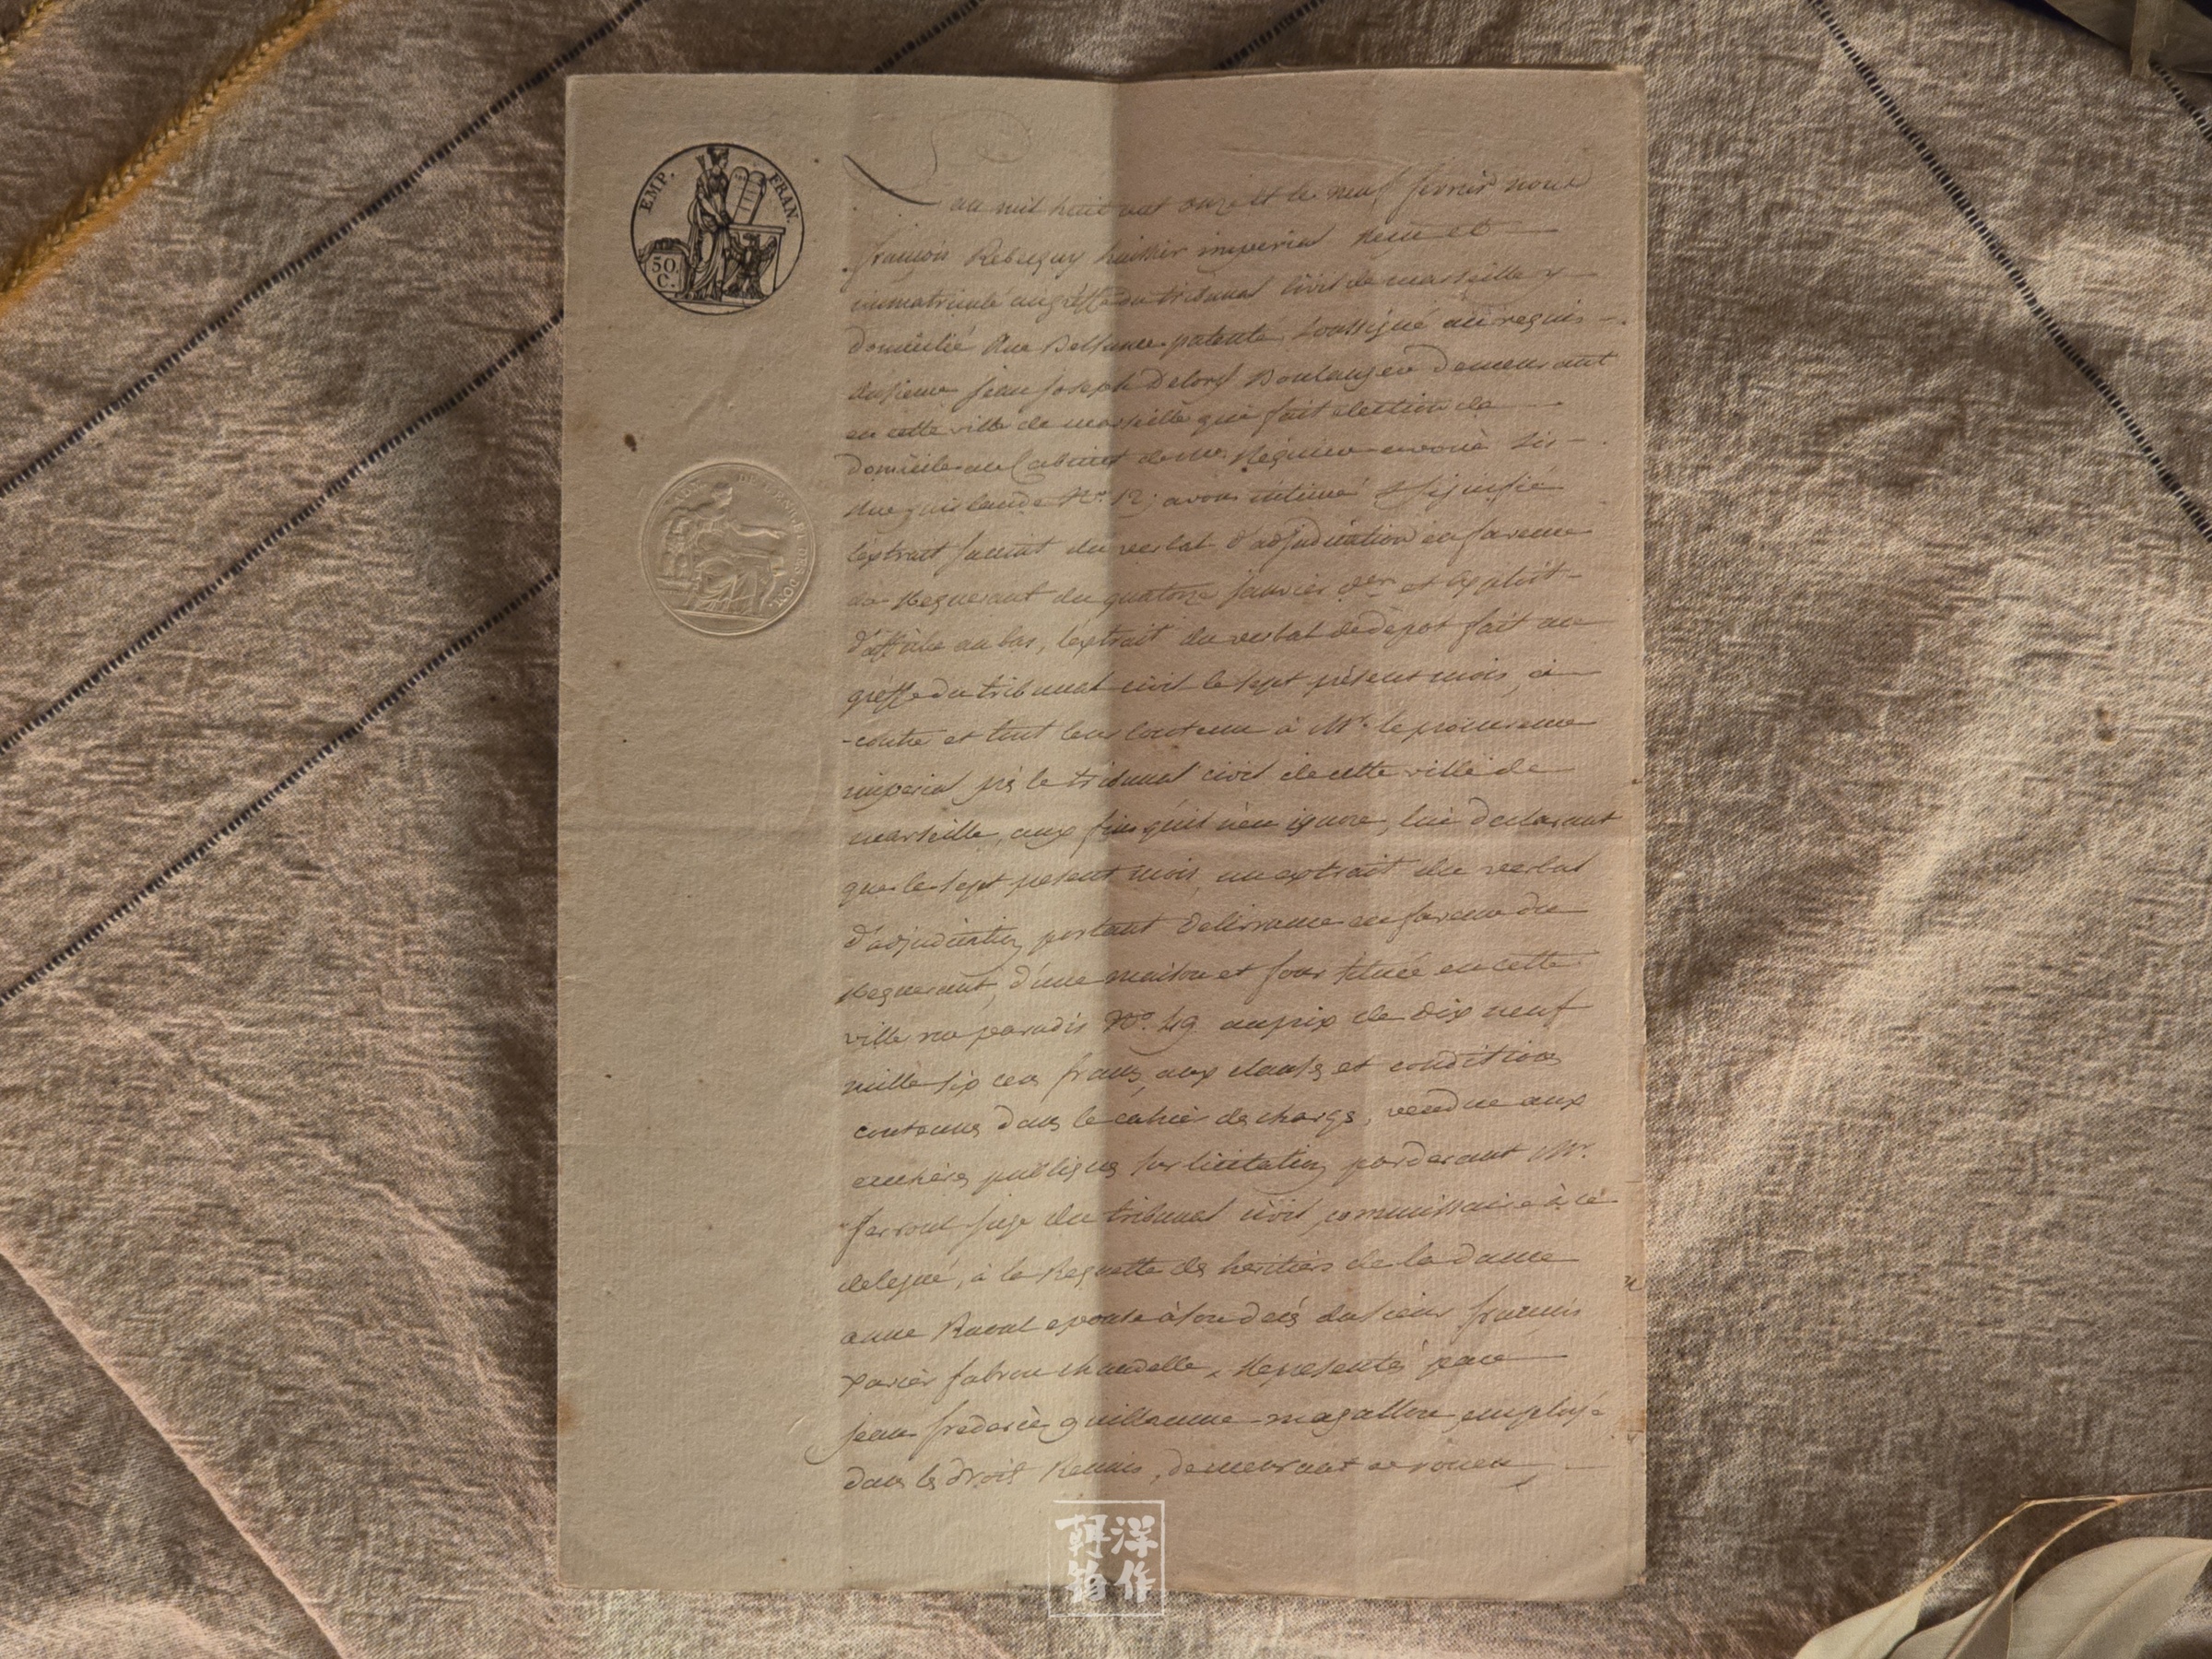 EMP. FRAN.
50. C.
DE L'ENREG. ET DES DOM.
an mil huit cent onze et le neuf fevrier nous
françois Rebecquy huissier imperial Reçu et
immatriculé au gréffe du tribunal Civil de marseille y
domicilié Rue Belsunce patenté, soussigné au requis
du sieur jean joseph Boulanger demeurant
en cette ville de marseille qui fait election de
domicile au Cabinet de me. avoué sis
Rue No. 12; avons intimé & signifié
l'extrait du verbal d'adjudication en faveur
du Requerant du quatorze janvier der. et Exploit
d'affiche au bas, l'extrait du verbal de dépot fait au
gréffe du tribunal civil le sept présent mois, ci
-contre et tout leur contenu à Mr. le procureur
imperial prés le tribunal civil de cette ville de
marseille, aux fins qu'il n'en ignore, lui déclarant
que le sept présent mois, un extrait du verbal
d'adjudication portant délivrance en faveur du
Requerant, d'une maison et four située en cette
ville rue paradis No. 49 au prix de dix neuf
mille six cens francs, aux clauses et conditions
contenues dans le cahier de charges, vendue aux
encheres publiques sur licitation pardevant Mr.
juge du tribunal civil, commissaire à ce
delegué, à la Requette des héritiers de la dame
anne épouse à son decés du sieur françois
xavier , Représentés par
jean fréderic guillaume magallon employé
dans les droits Réunis, demeurant a rouen,
朝洋
物作